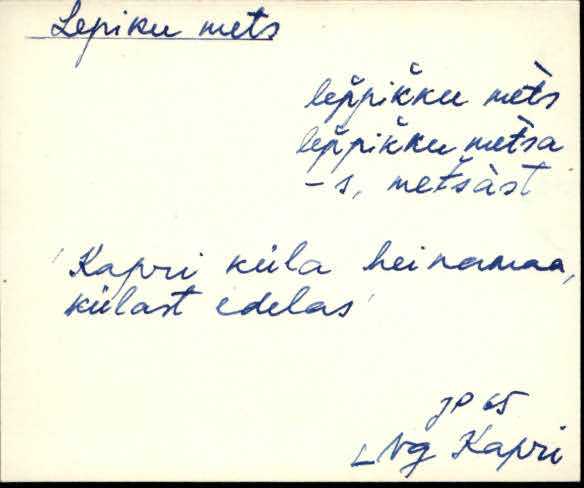 Lepiku mets
lep̆pik̆ku mèts
lep̆pik̆ku mètsa
-s, metsàst
'Kapri küla heinamaa,
külast edelas'
JP 65
Ng Kapri